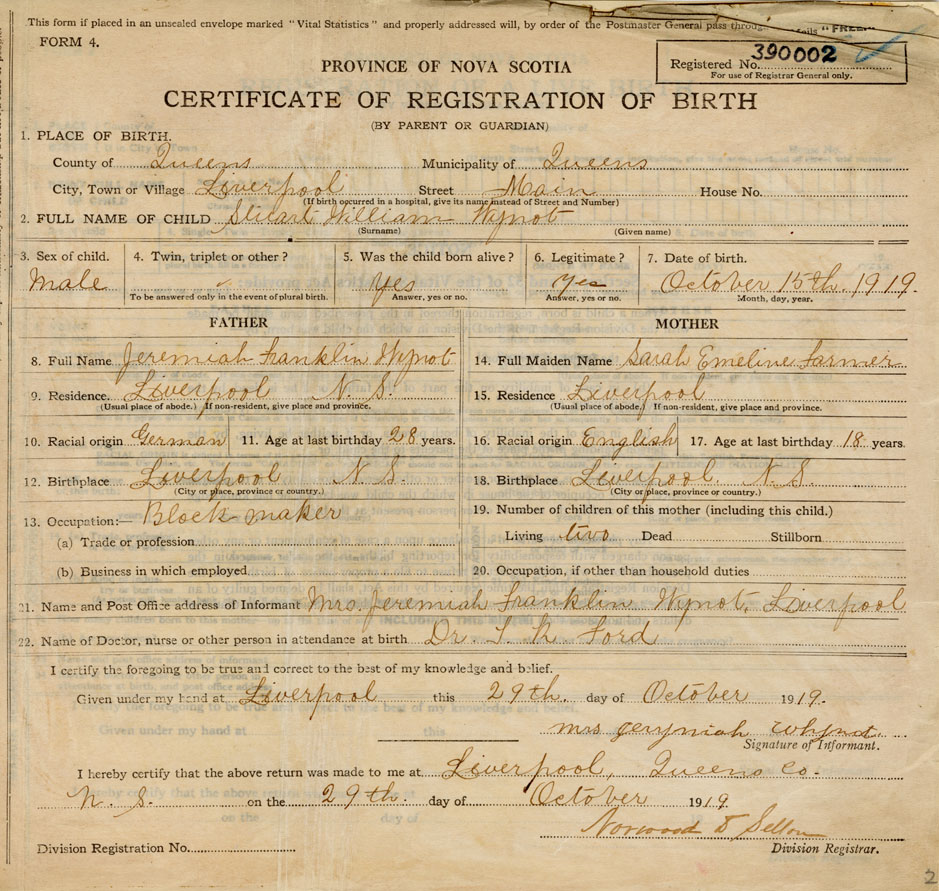 This form if placed in an unsealed envelope marked "Vital Statistics" and properly addressed will, by order of the Postmaster General pass through mails "FREE."
FORM 4.
390002
Registered No.
For use of Registrar General only.
PROVINCE OF NOVA SCOTIA
CERTIFICATE OF REGISTRATION OF BIRTH
(BY PARENT OR GUARDIAN)
1. PLACE OF BIRTH.
County of Queens Municipality of Queens
City, Town or Village Liverpool Street Main House No.
(If birth occurred in a hospital, give its name instead of Street and Number)
2. FULL NAME OF CHILD Stuart William Wynot
(Surname) (Given name)
3. Sex of child. 4. Twin, triplet or other? 5. Was the child born alive? 6. Legitimate? 7. Date of birth.
Male Yes Yes October 15th. 1919.
To be answered only in the event of plural birth. Answer, yes or no. Answer, yes or no. Month, day, year.
FATHER MOTHER
8. Full Name Jeremiah Franklin Wynot 14. Full Maiden Name Sarah Emeline Farmer
9. Residence. Liverpool N. S. 15. Residence Liverpool
(Usual place of abode.) If non-resident, give place and province. (Usual place of abode.) If non-resident, give place and province.
10. Racial origin German 11. Age at last birthday 28 years. 16. Racial origin English 17. Age at last birthday 18 years.
12. Birthplace Liverpool N. S. 18. Birthplace Liverpool. N. S.
(City or place, province or country.) (City or place, province or country.)
13. Occupation:— Block maker 19. Number of children of this mother (including this child.)
(a) Trade or profession Living two Dead Stillborn
(b) Business in which employed 20. Occupation, if other than household duties
21. Name and Post Office address of Informant Mrs. Jeremiah Franklin Wynot, Liverpool
22. Name of Doctor, nurse or other person in attendance at birth Dr. Ford
I certify the foregoing to be true and correct to the best of my knowledge and belief.
Given under my hand at Liverpool this 29th. day of October 1919.
mrs Jerymiah Whynot
Signature of Informant.
I hereby certify that the above return was made to me at Liverpool, Queens Co.
N. S. on the 29th. day of October 1919
Norwood
Division Registration No. Division Registrar.
2